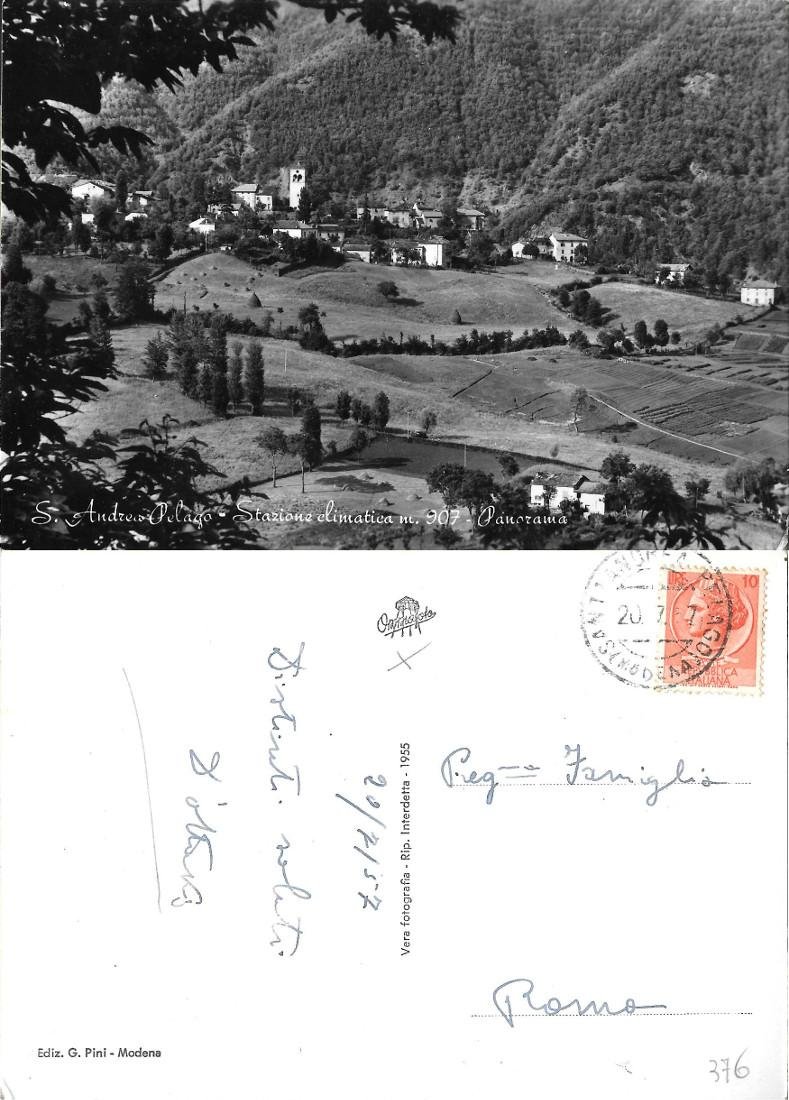 S. Andrea Pelago - Stazione climatica m. 907 - Panorama
SANT'ANDREA PELAGO
(MODENA)
20.7. 7
LIRE 10
REPUBBLICA
ITALIANA
20/7/57
Distinti saluti
Vera fotografia - Rip. Interdetta - 1955
Preg ma Famiglia
Roma
Ediz. G. Pini - Modena
376